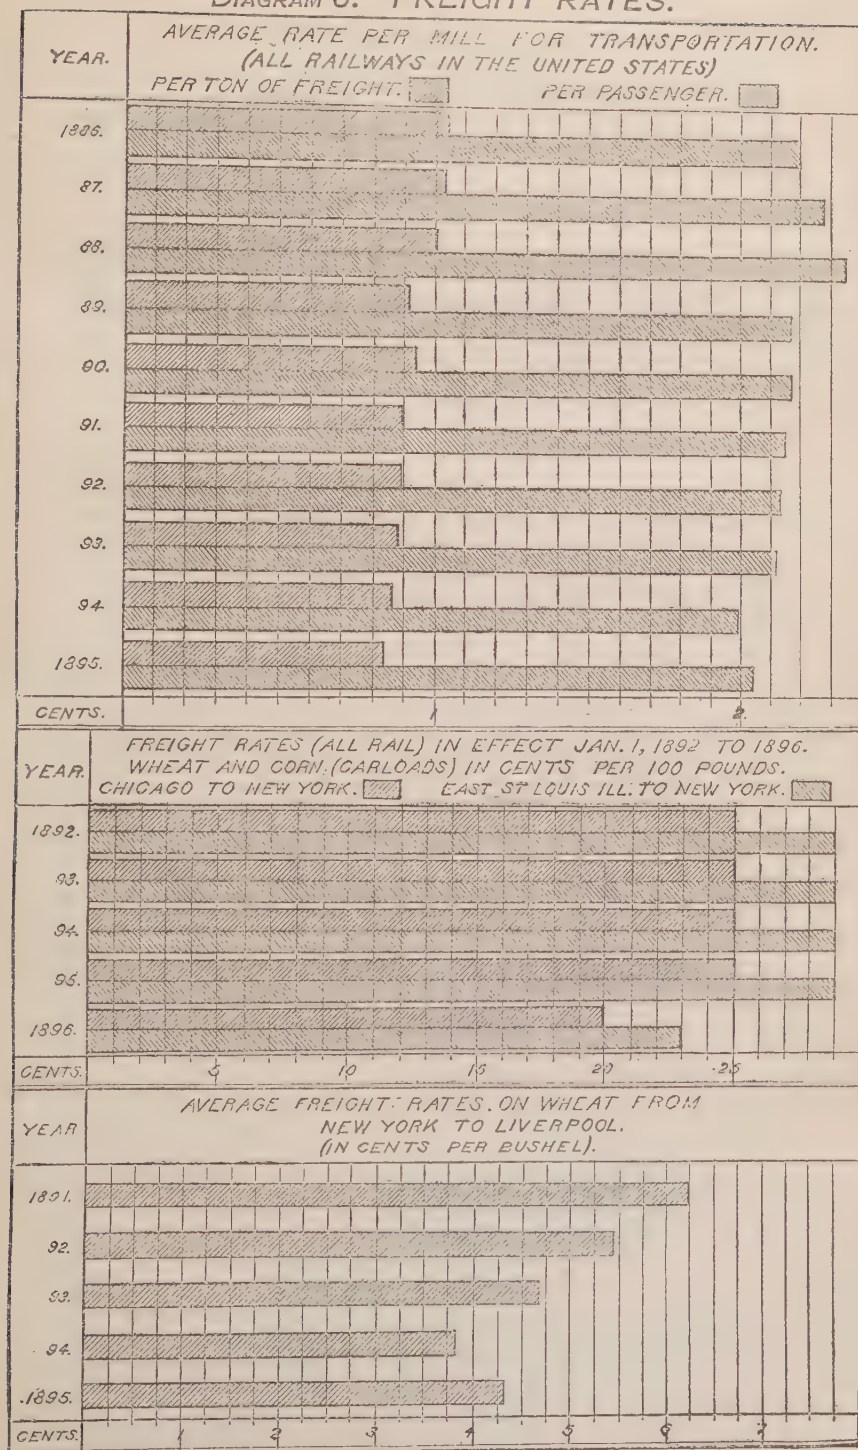 DIAGRAM 6. FREIGHT RATES.
YEAR.
AVERAGE RATE PER MILL FOR TRANSPORTATION.
(ALL RAILWAYS IN THE UNITED STATES)
PER TON OF FREIGHT. PER PASSENGER.
1886.
87.
88.
89.
90.
91.
92.
93.
94.
1895.
CENTS. 1 2
YEAR.
FREIGHT RATES (ALL RAIL) IN EFFECT JAN. 1, 1892 TO 1896.
WHEAT AND CORN. (CARLOADS) IN CENTS PER 100 POUNDS.
CHICAGO TO NEW YORK. EAST ST LOUIS ILL. TO NEW YORK.
1892.
93.
94.
95.
1896.
CENTS. 5 10 15 20 25
YEAR
AVERAGE FREIGHT RATES ON WHEAT FROM
NEW YORK TO LIVERPOOL.
(IN CENTS PER BUSHEL).
1891.
92.
93.
94.
1895.
CENTS. 1 2 3 4 5 6 7